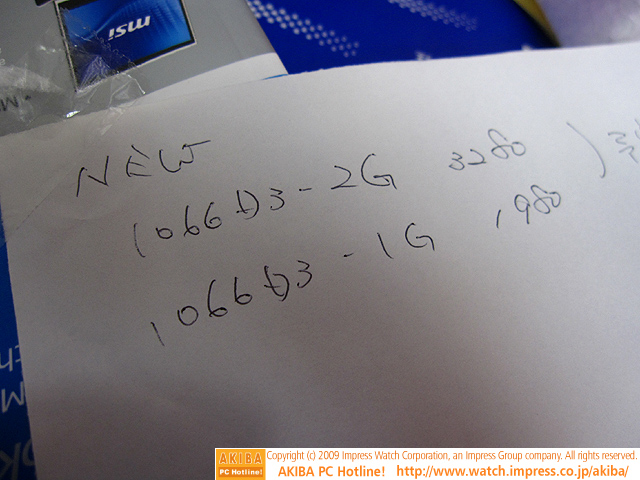 msi
NEW
1066 D3 - 2G 3280 )
1066 D3 - 1G 1980
AKIBA
PC Hotline!
Copyright (c) 2009 Impress Watch Corporation, an Impress Group company. All rights reserved.
AKIBA PC Hotline! http://www.watch.impress.co.jp/akiba/